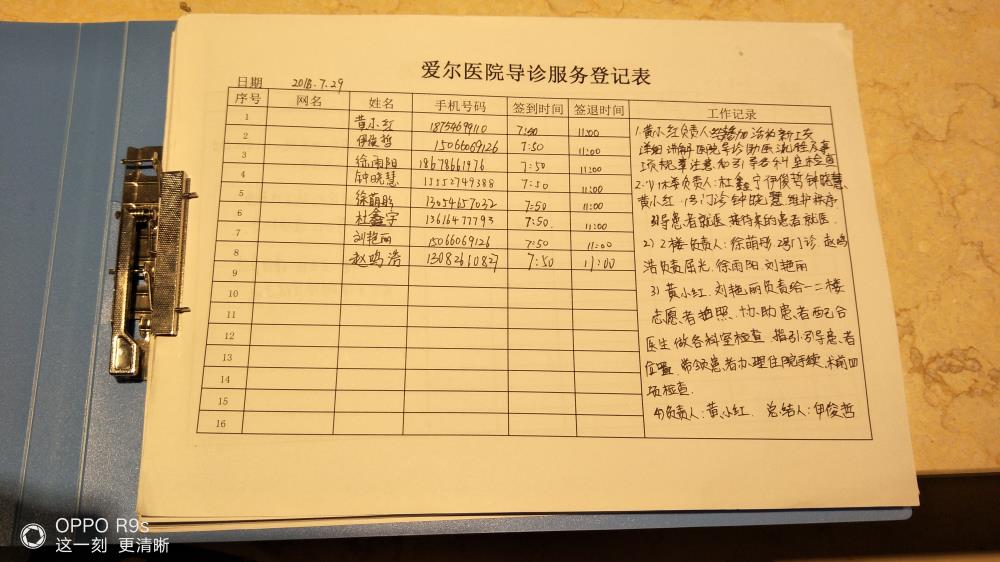 爱尔医院导诊服务登记表
日期 2018.7.29
序号 网名 姓名 手机号码 签到时间 签退时间 工作记录
1 黄小红 18754699110 7:50 11:00
2 伊俊哲 15066069126 7:50 11:00
3 徐雨阳 18678661976 7:50 11:00
4 钟晓慧 15552749388 7:50 11:00
5 徐萌彤 13054657032 7:50 11:00
6 杜鑫宇 13616477793 7:50. 11:00
7 刘艳丽 15066069126 7:50 11:00
8 赵鸣浩 13082610827 7:50 11:00
9
10
11
12
13
14
15
16
1.黄小红负责人给参加活动新上岗
详细讲解医院导诊助医流程及事
项规章注意和引导各科室检查
负责人:杜鑫宇伊俊哲钟晓慧.
黄小红.门诊钟晓慧维护秩序
引导患者就医接待来的患者就医.
2)2楼负责人:徐萌彤2号门诊.赵鸣
浩负责屈光.徐雨阳 刘艳丽
3)黄小红.刘艳丽负责给一二楼
志愿者拍照.协助患者配合
医生做各科室检查.指引.引导患者
位置.带领患者办理住院手续.术前四
项检查.
4)负责人:黄小红. 总结人:伊俊哲
OPPO R9s
这一刻 更清晰